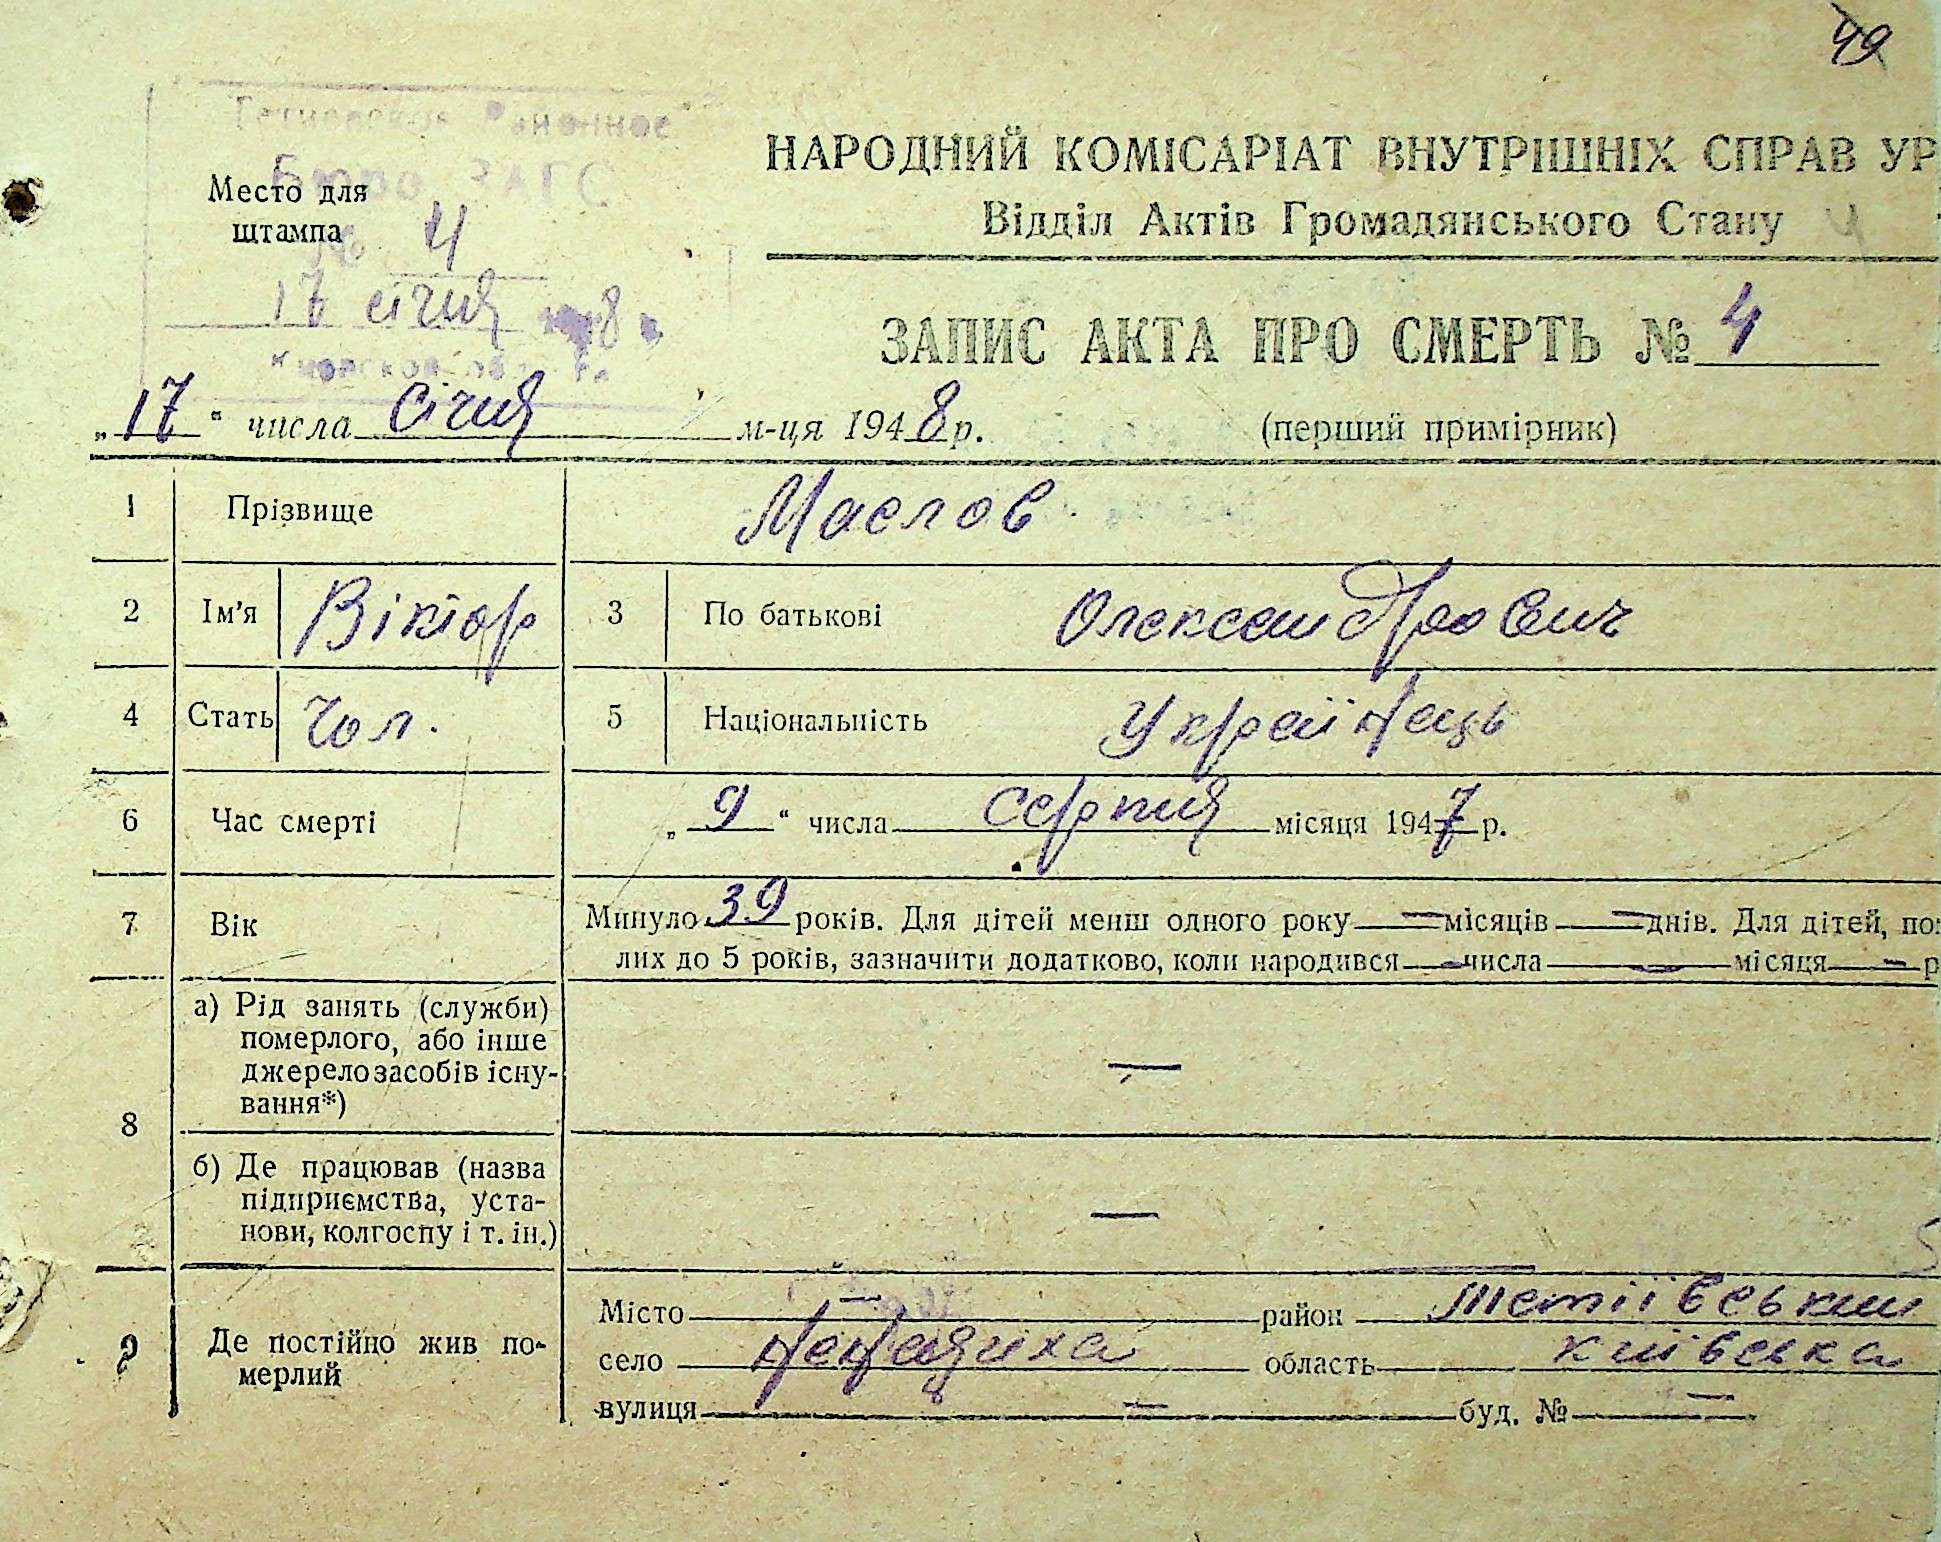 49
Районное
Бюро ЗАГС
Место для
штампа
№ 4
17 січня 8
Киевской обл.
НАРОДНИЙ КОМІСАРІАТ ВНУТРІШНІХ СПРАВ УР
Відділ Актів Громадянського Стану 4
ЗАПИС АКТА ПРО СМЕРТЬ № 4
„17“ числа січня м-ця 1948 р. (перший примірник)
1 Прізвище Маслов
2 Ім'я Віктор 3 По батькові Олександрович
4 Стать Чол. 5 Національність Українець
6 Час смерті „9“ числа серпня місяця 1947 р.
7 Вік Минуло 39 років. Для дітей менш одного року — місяців — днів. Для дітей, по
лих до 5 років, зазначити додатково, коли народився — числа — місяця — р
8 а) Рід занять (служби)
померлого, або інше
джерело засобів існу-
вання*) —
б) Де працював (назва
підприємства, уста-
нови, колгоспу і т. ін.) —
9 Де постійно жив по-
мерлий
Місто — район Тетіївський
село Ненадиха область Київська
вулиця — буд. № —